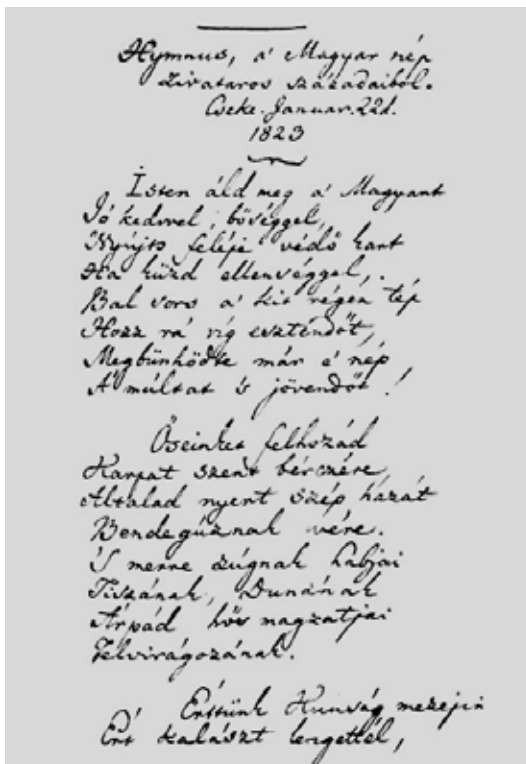 Hymnus, a' Magyar nép
zivataros századaiból.
Cseke. Januar. 22d.
1823
Isten áld meg a' Magyart
Jó kedvvel, bőséggel,
Nyújts feléje védő kart
Ha küzd ellenséggel,
Bal sors a' kit régen tép
Hozz rá víg esztendőt,
Megbűnhödte már e' nép
A' múltat 's jövendőt!
Őseinket felhozád
Kárpát szent bérczére,
Általad nyert szép hazát
Bendegúznak vére.
'S merre zúgnak habjai
Tiszának, Dunának
Árpád hős magzatjai
Felvirágozának.
Értünk Kunság mezején
Ért kalászt lengettél,